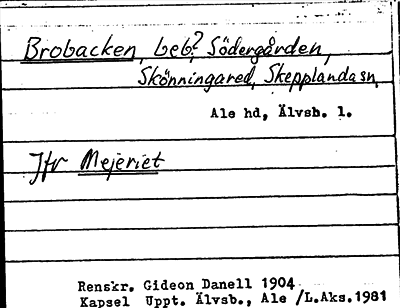 Brobacken, beb? Södergården,
Skönningared, Skepplanda sn,
Ale hd, Älvsb. l.
Jfr Mejeriet
Renskr. Gideon Danell 1904
Kapsel Uppt. Älvsb., Ale /L.Aks.1981